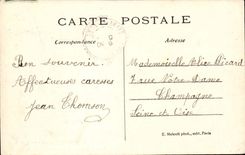 CARTE POSTALE
Correspondance
Adresse
Bon Souvenir.
Affectueuses caresses
Jean Thomson
Mademoiselle Alice Picard
7 rue Nôtre Dame
Champagne
Seine et Oise
édit, Paris